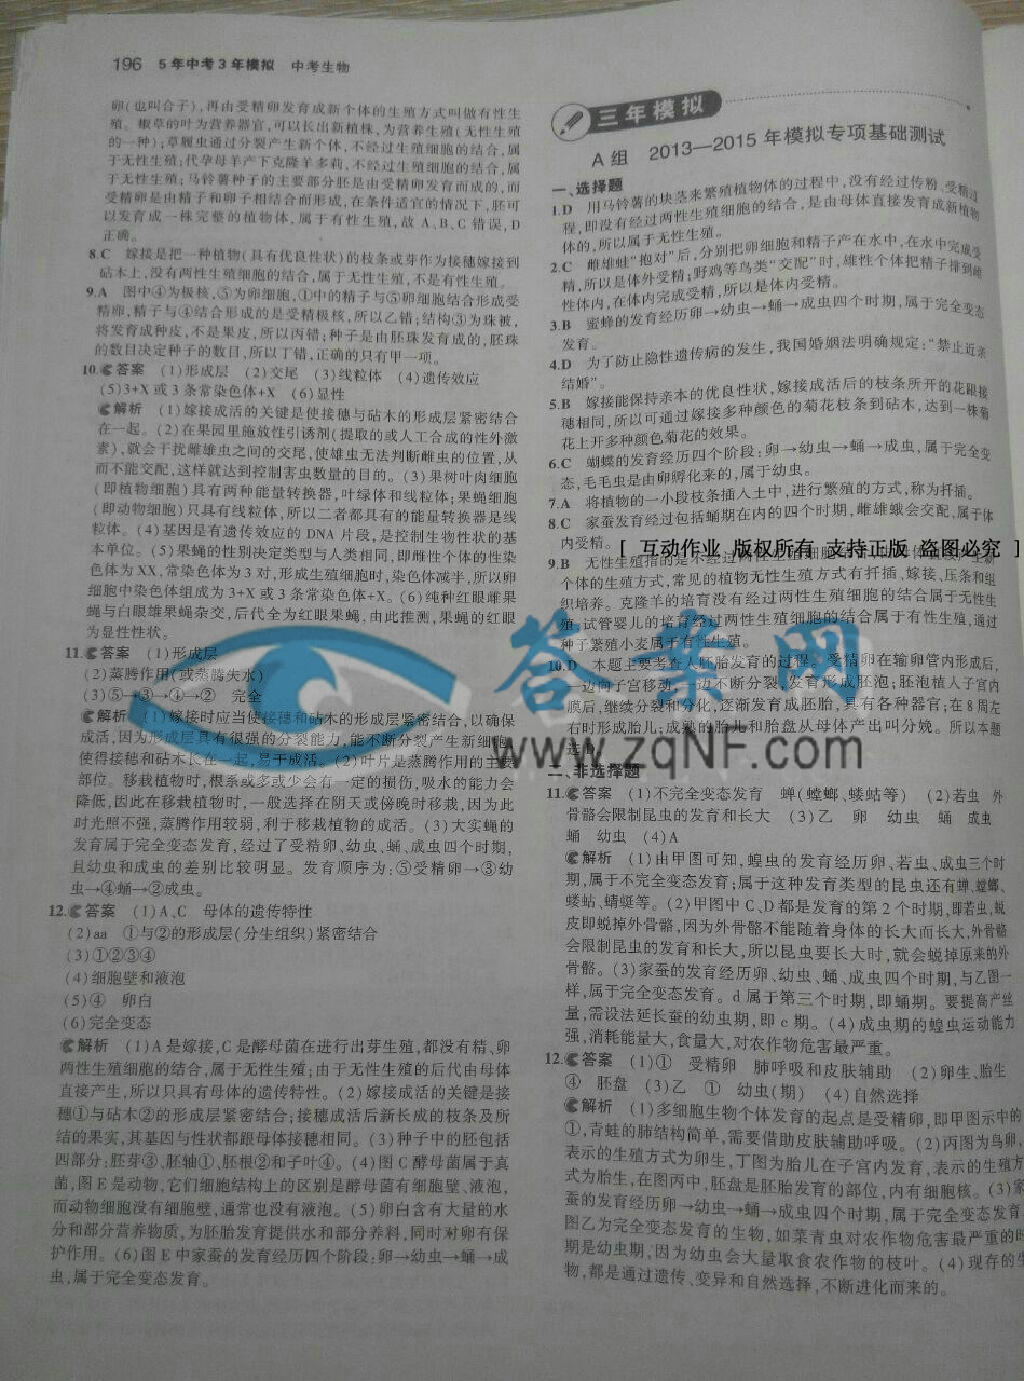 196 5年中考3年模拟 中考生物
卵(也叫合子),再由受精卵发育成新个体的生殖方式叫做有性生
殖。椒草的叶为营养器官,可以长出新植株,为营养生殖(无性生殖
的一种);草履虫通过分裂产生新个体,不经过生殖细胞的结合,属
于无性生殖;代孕母羊产下克隆羊多莉,不经过生殖细胞的结合,属
于无性生殖;马铃薯种子的主要部分胚是由受精卵发育而成的,而
受精卵是由精子和卵子相结合而形成,在条件适宜的情况下,胚可
以发育成一株完整的植物体,属于有性生殖,故A、B、C错误,D
正确。
8.C 嫁接是把一种植物(具有优良性状)的枝条或芽作为接穗嫁接到
砧木上,没有两性生殖细胞的结合,属于无性生殖,不是有性生殖。
9.A 图中④为极核,⑤为卵细胞,①中的精子与⑤卵细胞结合形成受
精卵,精子与④结合形成的是受精极核,所以乙错;结构③为珠被,
将发育成种皮,不是果皮,所以丙错;种子是由胚珠发育成的,胚珠
的数目决定种子的数目,所以丁错,正确的只有甲一项。
10.答案 (1)形成层 (2)交尾 (3)线粒体 (4)遗传效应
(5)3+X或3条常染色体+X (6)显性
解析 (1)嫁接成活的关键是使接穗与砧木的形成层紧密结合
在一起。(2)在果园里施放性引诱剂(提取的或人工合成的性外激
素),就会干扰雌雄虫之间的交尾,使雄虫无法判断雌虫的位置,从
而不能交配,这样就达到控制害虫数量的目的。(3)果树叶肉细胞
(即植物细胞)具有两种能量转换器,叶绿体和线粒体;果蝇细胞
(即动物细胞)只有线粒体,所以二者都具有的能量转换器是线
粒体。(4)基因是有遗传效应的DNA片段,是控制生物性状的基
本单位。(5)果蝇的性别决定类型与人类相同,即雌性个体的性染
色体为XX,常染色体为3对,形成生殖细胞时,染色体减半,所以卵
细胞中染色体组成为3+X或3条常染色体+X。(6)纯种红眼雌果
蝇与白眼雄果蝇杂交,后代全为红眼果蝇,由此推测,果蝇的红眼
为显性性状。
11.答案 (1)形成层
(2)蒸腾作用(或蒸腾失水)
(3)⑤→③→④→② 完全
解析 (1)嫁接时应当使接穗和砧木的形成层紧密结合,以确保
成活,因为形成层具有很强的分裂能力,能不断分裂产生新细胞,
使得接穗和砧木长在一起,易于成活。(2)叶片是蒸腾作用的主要
部位。移栽植物时,根系或多或少会有一定的损伤,吸水的能力会
降低,因此在移栽植物时,一般选择在阴天或傍晚时移栽,因为此
时光照不强,蒸腾作用较弱,利于移栽植物的成活。(3)大实蝇的
发育属于完全变态发育,经过了受精卵、幼虫、蛹、成虫四个时期,
且幼虫和成虫的差别比较明显。发育顺序为:⑤受精卵→③幼
虫→④蛹→②成虫。
12.答案 (1)A、C 母体的遗传特性
(2)aa ①与②的形成层(分生组织)紧密结合
(3)①②③④
(4)细胞壁和液泡
(5)④ 卵白
(6)完全变态
解析 (1)A是嫁接,C是酵母菌在进行出芽生殖,都没有精、卵
两性生殖细胞的结合,属于无性生殖;由于无性生殖的后代由母体
直接产生,所以只具有母体的遗传特性。(2)嫁接成活的关键是接
穗①与砧木②的形成层紧密结合;接穗成活后新长成的枝条及所
结的果实,其基因与性状都跟母体接穗相同。(3)种子中的胚包括
四部分:胚芽③、胚轴①、胚根②和子叶④。(4)图C酵母菌属于真
菌,图E是动物,它们细胞结构上的区别是酵母菌有细胞壁、液泡,
而动物细胞没有细胞壁,通常也没有液泡。(5)卵白含有大量的水
分和部分营养物质,为胚胎发育提供水和部分养料,同时对卵有保
护作用。(6)图E中家蚕的发育经历四个阶段:卵→幼虫→蛹→成
虫,属于完全变态发育。
三年模拟
A组 2013—2015年模拟专项基础测试
一、选择题
1.D 用马铃薯的块茎来繁殖植物体的过程中,没有经过传粉、受精过
程,即没有经过两性生殖细胞的结合,是由母体直接发育成新植物
体的,所以属于无性生殖。
2.C 雌雄蛙“抱对”后,分别把卵细胞和精子产在水中,在水中完成受
精,所以是体外受精;野鸡等鸟类“交配”时,雄性个体把精子排到雌
性体内,在体内完成受精,所以是体内受精。
3.B 蜜蜂的发育经历卵→幼虫→蛹→成虫四个时期,属于完全变态
发育。
4.D 为了防止隐性遗传病的发生,我国婚姻法明确规定:“禁止近亲
结婚”。
5.B 嫁接能保持亲本的优良性状,嫁接成活后的枝条所开的花跟接
穗相同,所以可通过嫁接多种颜色的菊花枝条到砧木,达到一株菊
花上开多种颜色菊花的效果。
6.C 蝴蝶的发育经历四个阶段:卵→幼虫→蛹→成虫,属于完全变
态,毛毛虫是由卵孵化来的,属于幼虫。
7.A 将植物的一小段枝条插入土中,进行繁殖的方式,称为扦插。
8.C 家蚕发育经过包括蛹期在内的四个时期,雌雄蛾会交配,属于体
内受精。
[ 互动作业 版权所有 支持正版 盗图必究 ]
9.B 无性生殖指的是不经过两性生殖细胞
个体的生殖方式,常见的植物无性生殖方式有扦插、嫁接、压条和组
织培养。克隆羊的培育没有经过两性生殖细胞的结合属于无性生
殖,试管婴儿的培育经过两性生殖细胞的结合属于有性生殖,通过
种子繁殖小麦属于有性生殖。
10.D 本题主要考查人胚胎发育的过程。受精卵在输卵管内形成后,
一边向子宫移动,一边不断分裂,发育形成胚泡;胚泡植入子宫内
膜后,继续分裂和分化,逐渐发育成胚胎,具有各种器官;在8周左
右时形成胎儿;成熟的胎儿和胎盘从母体产出叫分娩。所以本题
选D。
答案网
www.zqNF.com
二、非选择题
11.答案 (1)不完全变态发育 蝉(螳螂、蝼蛄等) (2)若虫 外
骨骼会限制昆虫的发育和长大 (3)乙 卵 幼虫 蛹 成虫
蛹 幼虫 (4)A
解析 (1)由甲图可知,蝗虫的发育经历卵、若虫、成虫三个时
期,属于不完全变态发育;属于这种发育类型的昆虫还有蝉、螳螂、
蝼蛄、蜻蜓等。(2)甲图中C、D都是发育的第2个时期,即若虫,蜕
皮即蜕掉外骨骼,因为外骨骼不能随着身体的长大而长大,外骨骼
会限制昆虫的发育和长大,所以昆虫要长大时,就会蜕掉原来的外
骨骼。(3)家蚕的发育经历卵、幼虫、蛹、成虫四个时期,与乙图一
样,属于完全变态发育。d属于第三个时期,即蛹期。要提高产丝
量,需设法延长蚕的幼虫期,即c期。(4)成虫期的蝗虫运动能力
强,消耗能量大,食量大,对农作物危害最严重。
12.答案 (1)① 受精卵 肺呼吸和皮肤辅助 (2)卵生、胎生
④ 胚盘 (3)乙 ① 幼虫(期) (4)自然选择
解析 (1)多细胞生物个体发育的起点是受精卵,即甲图示中的
①,青蛙的肺结构简单,需要借助皮肤辅助呼吸。(2)丙图为鸟卵,
表示的生殖方式为卵生,丁图为胎儿在子宫内发育,表示的生殖方
式为胎生,在图丙中,胚盘是胚胎发育的部位,内有细胞核。(3)家
蚕的发育经历卵→幼虫→蛹→成虫四个时期,属于完全变态发育
图乙为完全变态发育的生物,如菜青虫对农作物危害最严重的时
期是幼虫期,因为幼虫会大量取食农作物的枝叶。(4)现存的生
物,都是通过遗传、变异和自然选择,不断进化而来的。